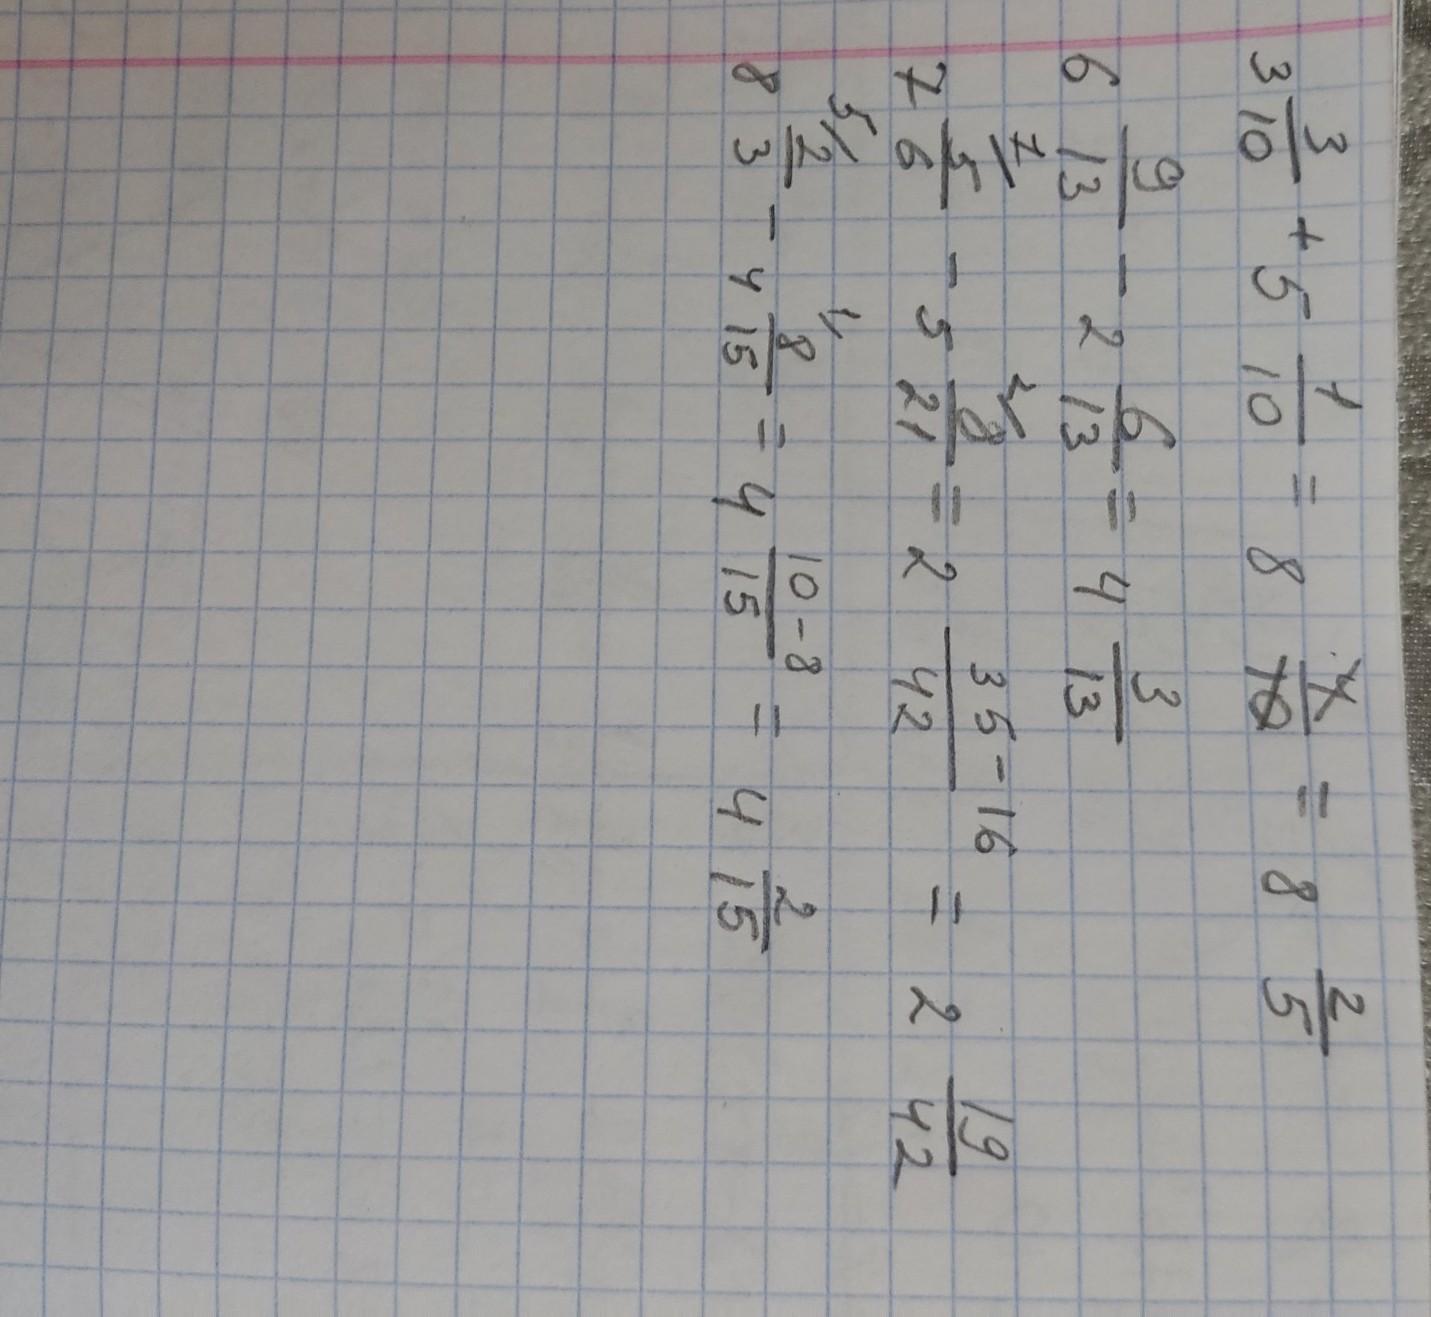 3 3/10 + 5 1/10 = 8 4/10 = 8 2/5
6 9/13 - 2 6/13 = 4 3/13
7 5/6 ⁷⁄ - 5 8/21 ²⁄ = 2 35-16/42 = 2 19/42
8 2/3 ⁵⁄ - 4 8/15 ¹⁄ = 4 10-8/15 = 4 2/15